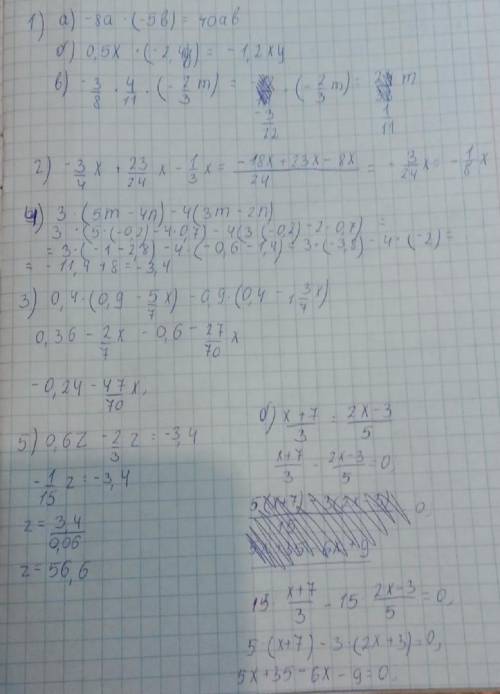 1) а) -8a · (-5b) = 40ab
б) 0,5x · (-2,4y) = -1,2xy
в) -3/8 · 4/11 · (-2/3 m) = -3/22 · (-2/3 m) = 1/11 m
2) -3/4 x + 23/24 x - 1/3 x = (-18x + 23x - 8x)/24 = -3/24 x = -1/8 x
4) 3 · (5m - 4n) - 4(3m - 2n)
3 · (5 · (-0,2) - 4 · 0,7) - 4(3 · (-0,2) - 2 · 0,7) =
= 3 · (-1 - 2,8) - 4 · (-0,6 - 1,4) = 3 · (-3,8) - 4 · (-2) =
= -11,4 + 8 = -3,4
3) 0,4 · (0,9 - 5/7 x) - 0,9 · (0,4 - 1 3/7 x)
0,36 - 2/7 x - 0,6 - 27/70 x
-0,24 - 47/70 x.
5) 0,6z - 2/3 z = -3,4
-1/15 z = -3,4
z = 3,4/0,06
z = 56,6
б) (x+7)/3 = (2x-3)/5
(x+7)/3 - (2x-3)/5 = 0,
15 (x+7)/3 - 15 (2x-3)/5 = 0,
5 · (x+7) - 3 · (2x+3) = 0,
5x + 35 - 6x - 9 = 0,